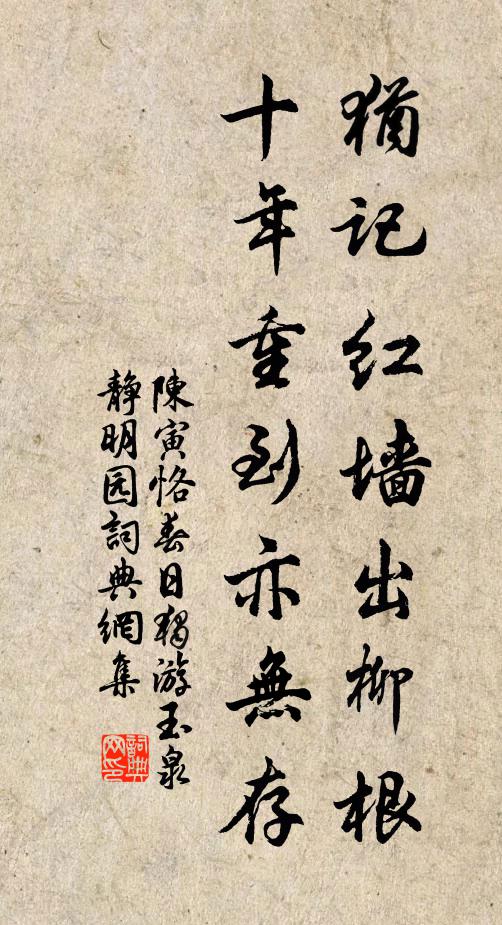 猶记红墙出柳根
十年重到亦無存
陳寅恪春日獨游玉泉
静明园詞典網集
詞典
网印